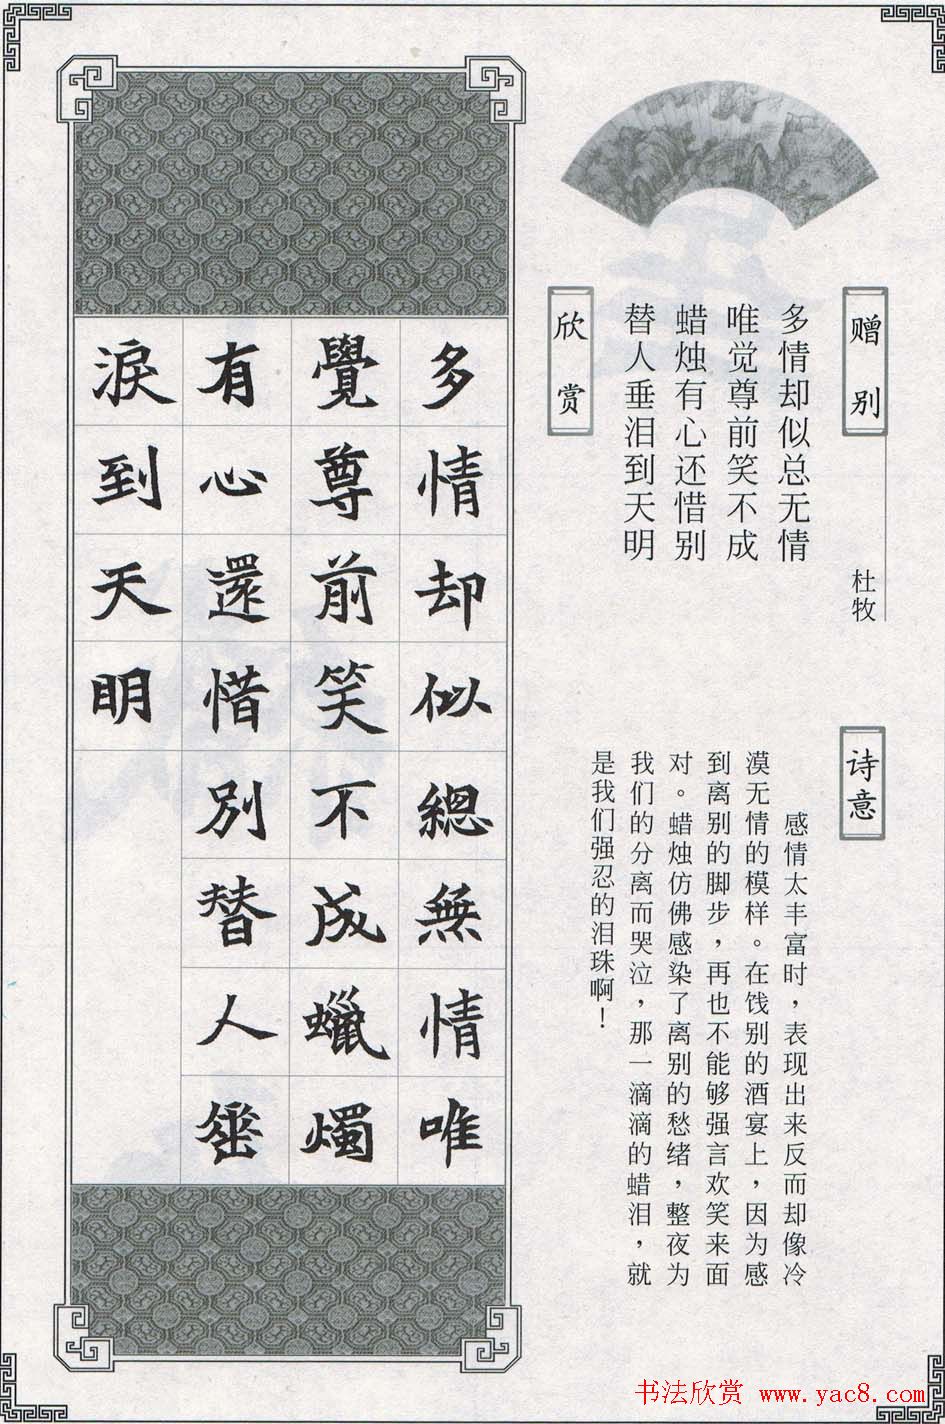 赠别
杜牧
多情却似总无情
唯觉尊前笑不成
蜡烛有心还惜别
替人垂泪到天明
欣赏
诗意
感情太丰富时，表现出来反而却像冷
漠无情的模样。在饯别的酒宴上，因为感
到离别的脚步，再也不能够强言欢笑来面
对。蜡烛仿佛感染了离别的愁绪，整夜为
我们的分离而哭泣，那一滴滴的蜡泪，就
是我们强忍的泪珠啊！
多情却似總無情唯
覺尊前笑不成蠟燭
有心還惜別替人垂
淚到天明
书法欣赏 www.yac8.com